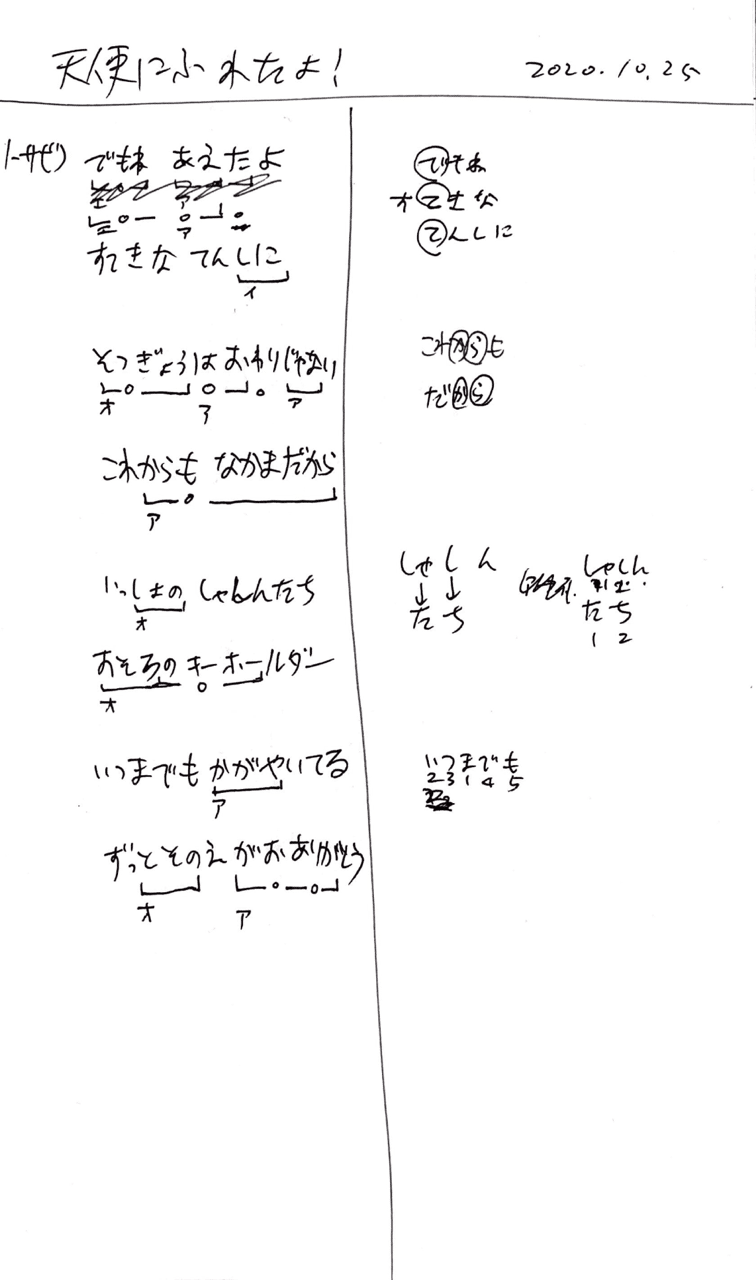 天使にふれたよ！ 2020.10.25
1-サビ) でもね あえたよ
ア
エ ア
すてきな てんしに
イ
そつぎょうは おわりじゃない
オ ア ア
これからも なかまだから
ア
いっしょの しゃしんたち
オ
おそろの キーホールダー
オ
いつまでも かがやいてる
ア
ずっとそのえがおありがとう
オ ア
でもね
すてきな
てんしに
これからも
だから
しゃしん
↓ ↓
たち
しゃしん
たち
1 2
いつまでも
2 3 1 4 5